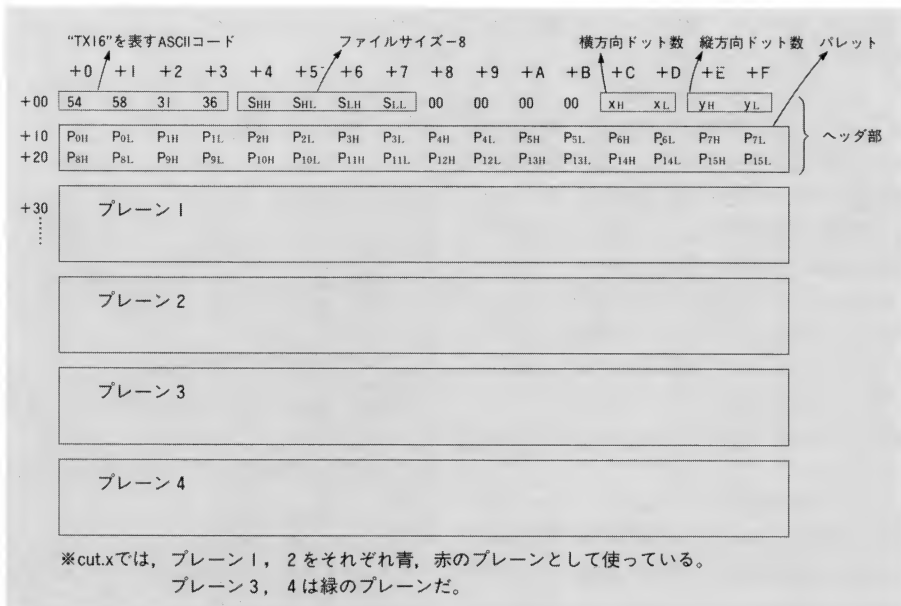 “TX16”を表すASCIIコード ファイルサイズ－8 横方向ドット数 縦方向ドット数 パレット
+0 +1 +2 +3 +4 +5 +6 +7 +8 +9 +A +B +C +D +E +F
+00 54 58 31 36 SHH SHL SLH SLL 00 00 00 00 xH xL yH yL
+10 P0H P0L P1H P1L P2H P2L P3H P3L P4H P4L P5H P5L P6H P6L P7H P7L ヘッダ部
+20 P8H P8L P9H P9L P10H P10L P11H P11L P12H P12L P13H P13L P14H P14L P15H P15L
+30 プレーン1
プレーン2
プレーン3
プレーン4
※cut.xでは，プレーン1，2をそれぞれ青，赤のプレーンとして使っている。
プレーン3，4は緑のプレーンだ。